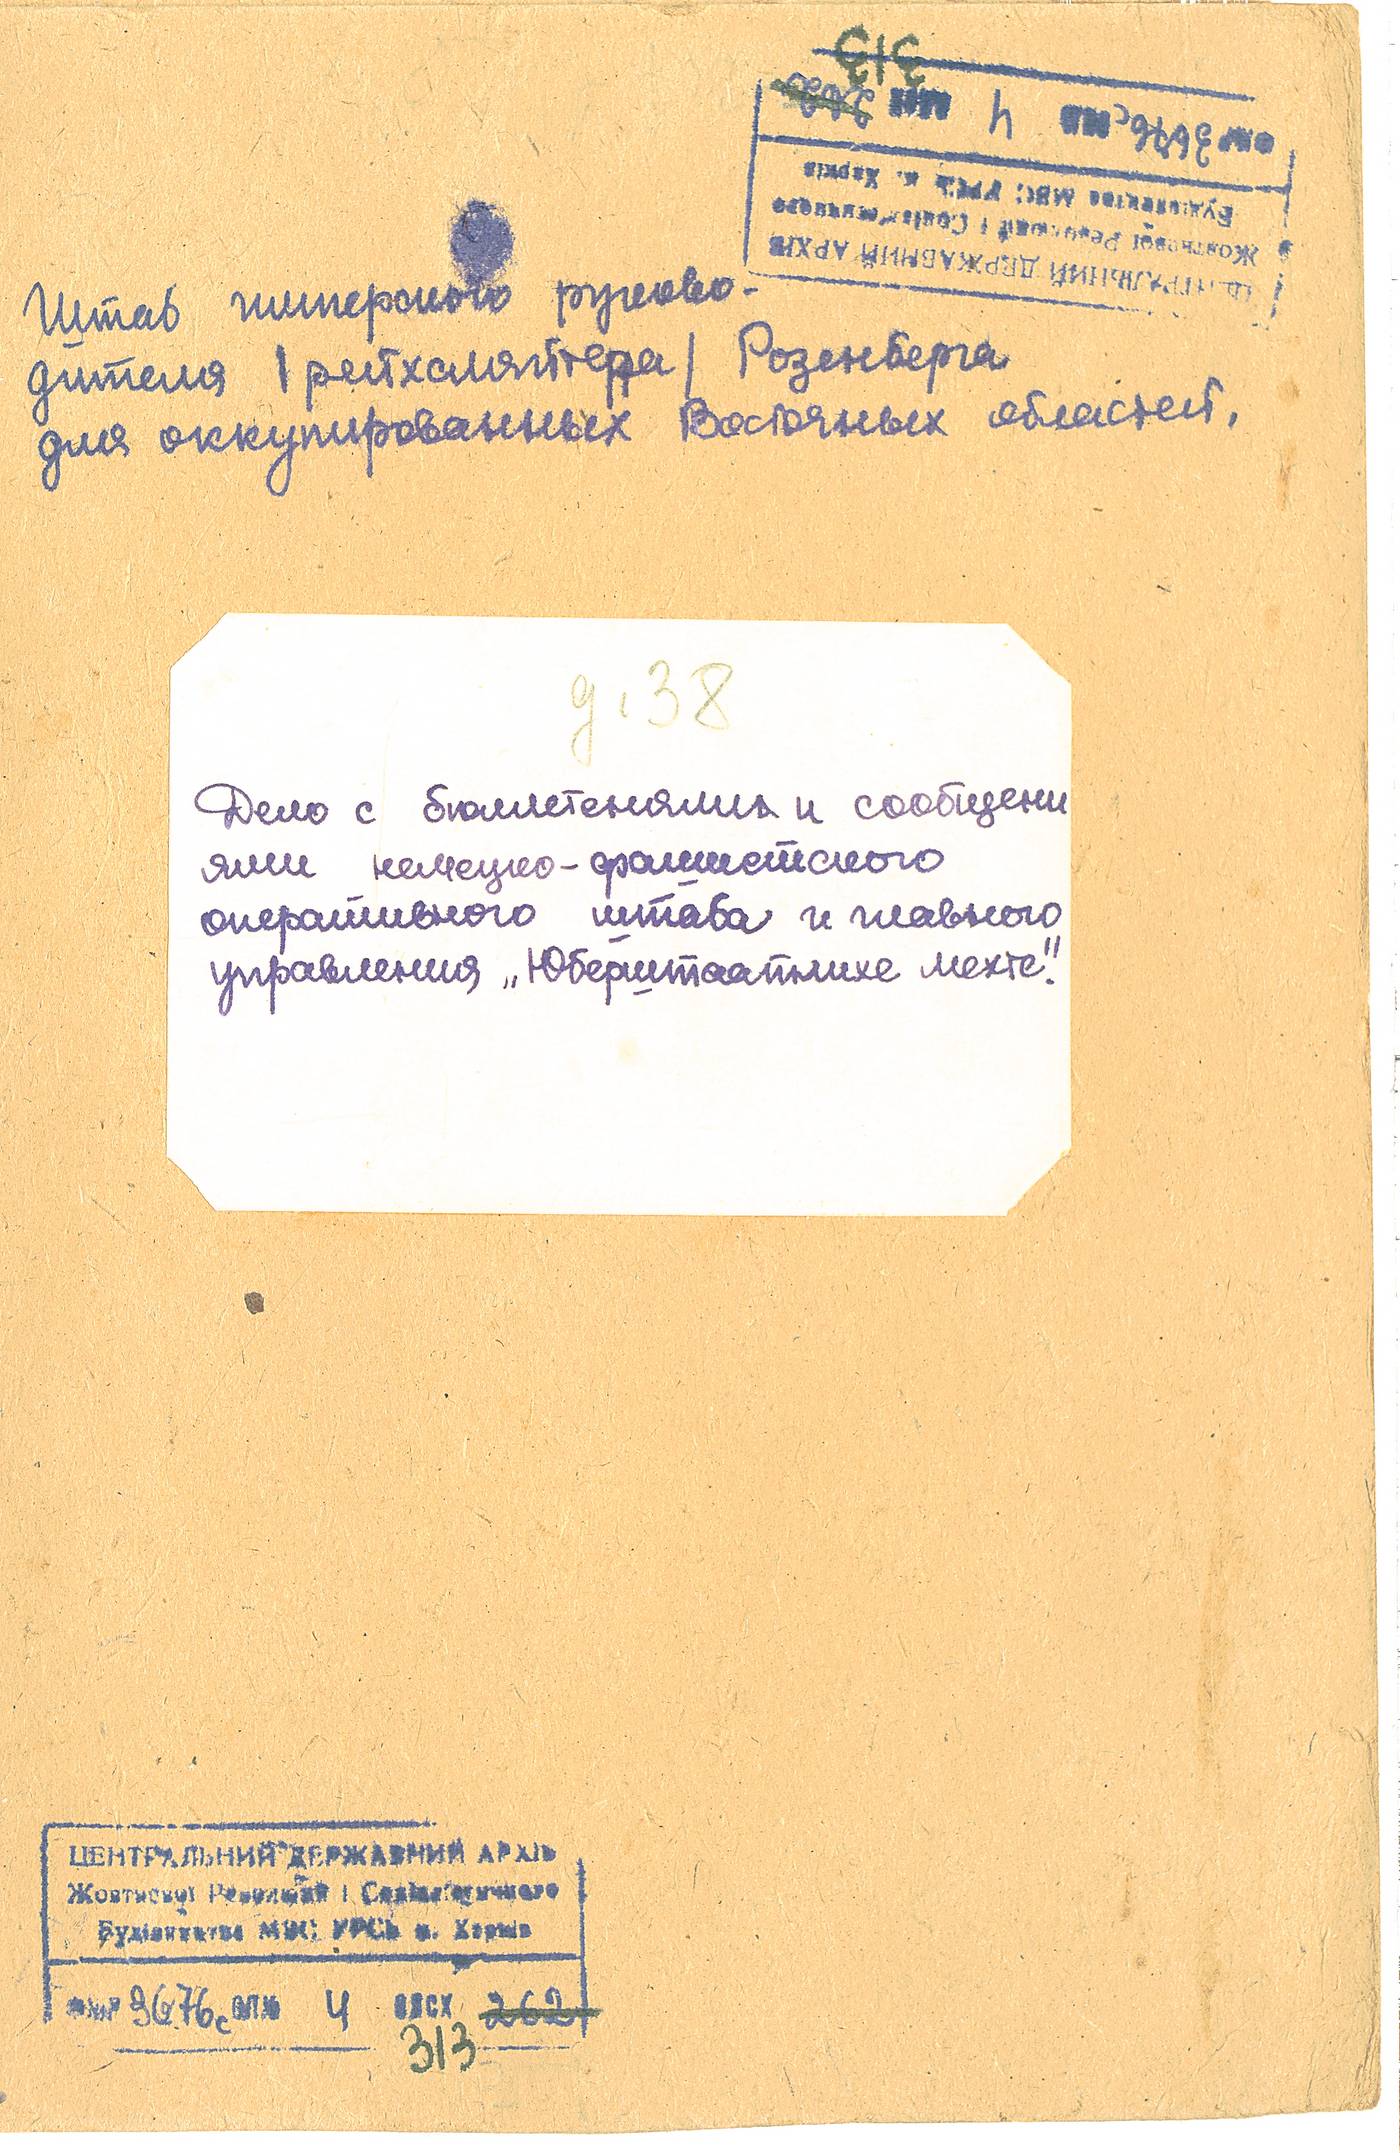 313
ФОНД 3676с ОПИС 4 СПР 262
ЦЕНТРАЛЬНИЙ ДЕРЖАВНИЙ АРХІВ
Жовтневої Революції і Соціалістичного
Будівництва МВС УРСР м. Харків
Штаб имперского руково-
дителя /рейхсляйтера/ Розенберга
для оккупированных Восточных областей.
д. 38
Дело с бюллетенями и сообщени
ями немецко-фашистского
оперативного штаба и главного
управления „Юберштаатлихе Мехте".
ЦЕНТРАЛЬНИЙ ДЕРЖАВНИЙ АРХІВ
Жовтневої Революції і Соціалістичного
Будівництва МВС УРСР м. Харків
3676с 4 262
313